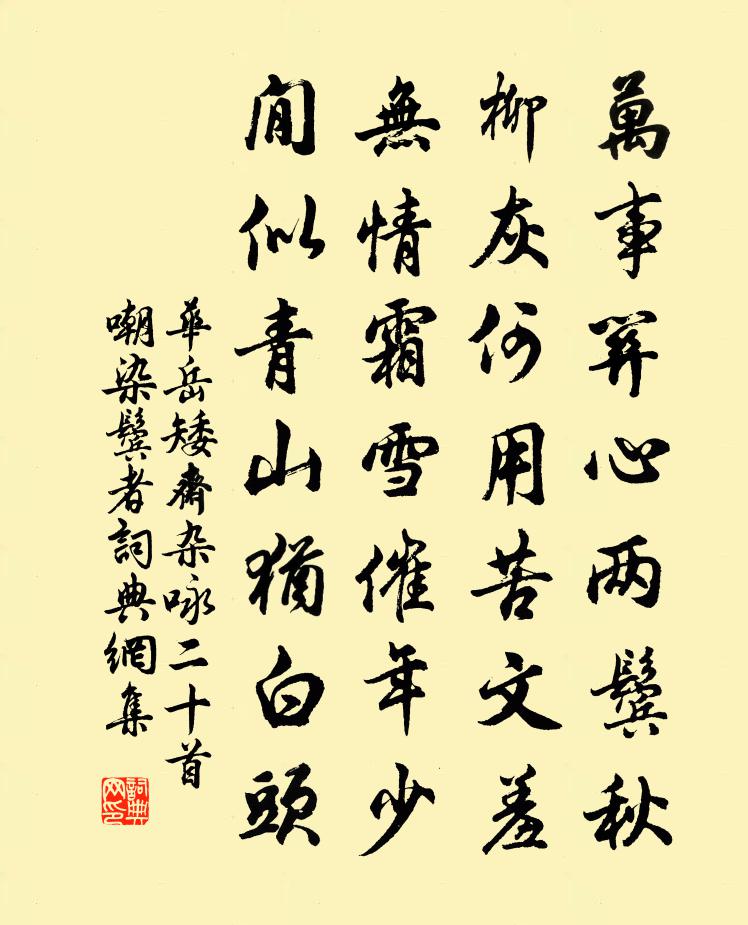 萬事關心两鬓秋
柳灰何用苦文羞
無情霜雪催年少
閒似青山猶白頭
華岳矮齋杂咏二十首
嘲染鬓者詞典網集
詞典网印